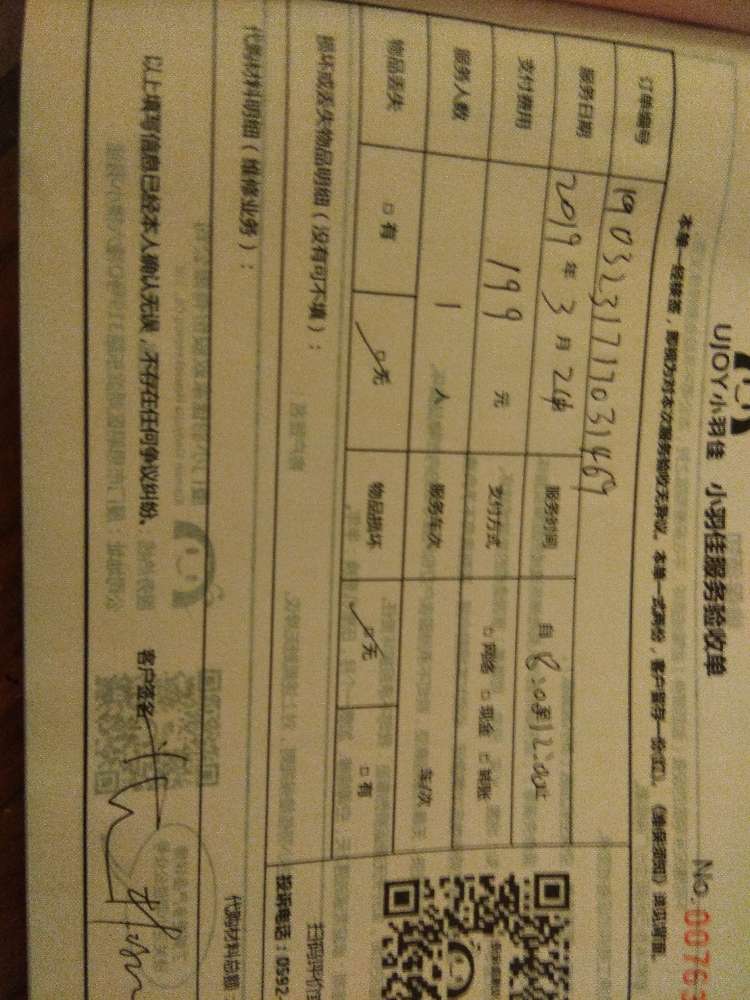 UJOY小羽佳 小羽佳服务验收单
No.0076
本单一经接签，即视为对本次服务验收无异议。本单一式两份，客户留存一份(红)。（维保须知）详见背面。
订单编号 1903231717031469
服务日期 2019年3月24 服务时间 自8:0至12:00
支付费用 199元 支付方式 □网络 □现金 □转账
服务人数 1人 服务车次 车/次
物品丢失 □有 □无 物品损坏 □无 □有
损坏或丢失物品明细（没有可不填）：
扫码评价
投诉电话：0592
代购材料明细（维修业务）：
代购材料总额
以上填写信息已经本人确认无误，不存在任何争议纠纷。 客户签名